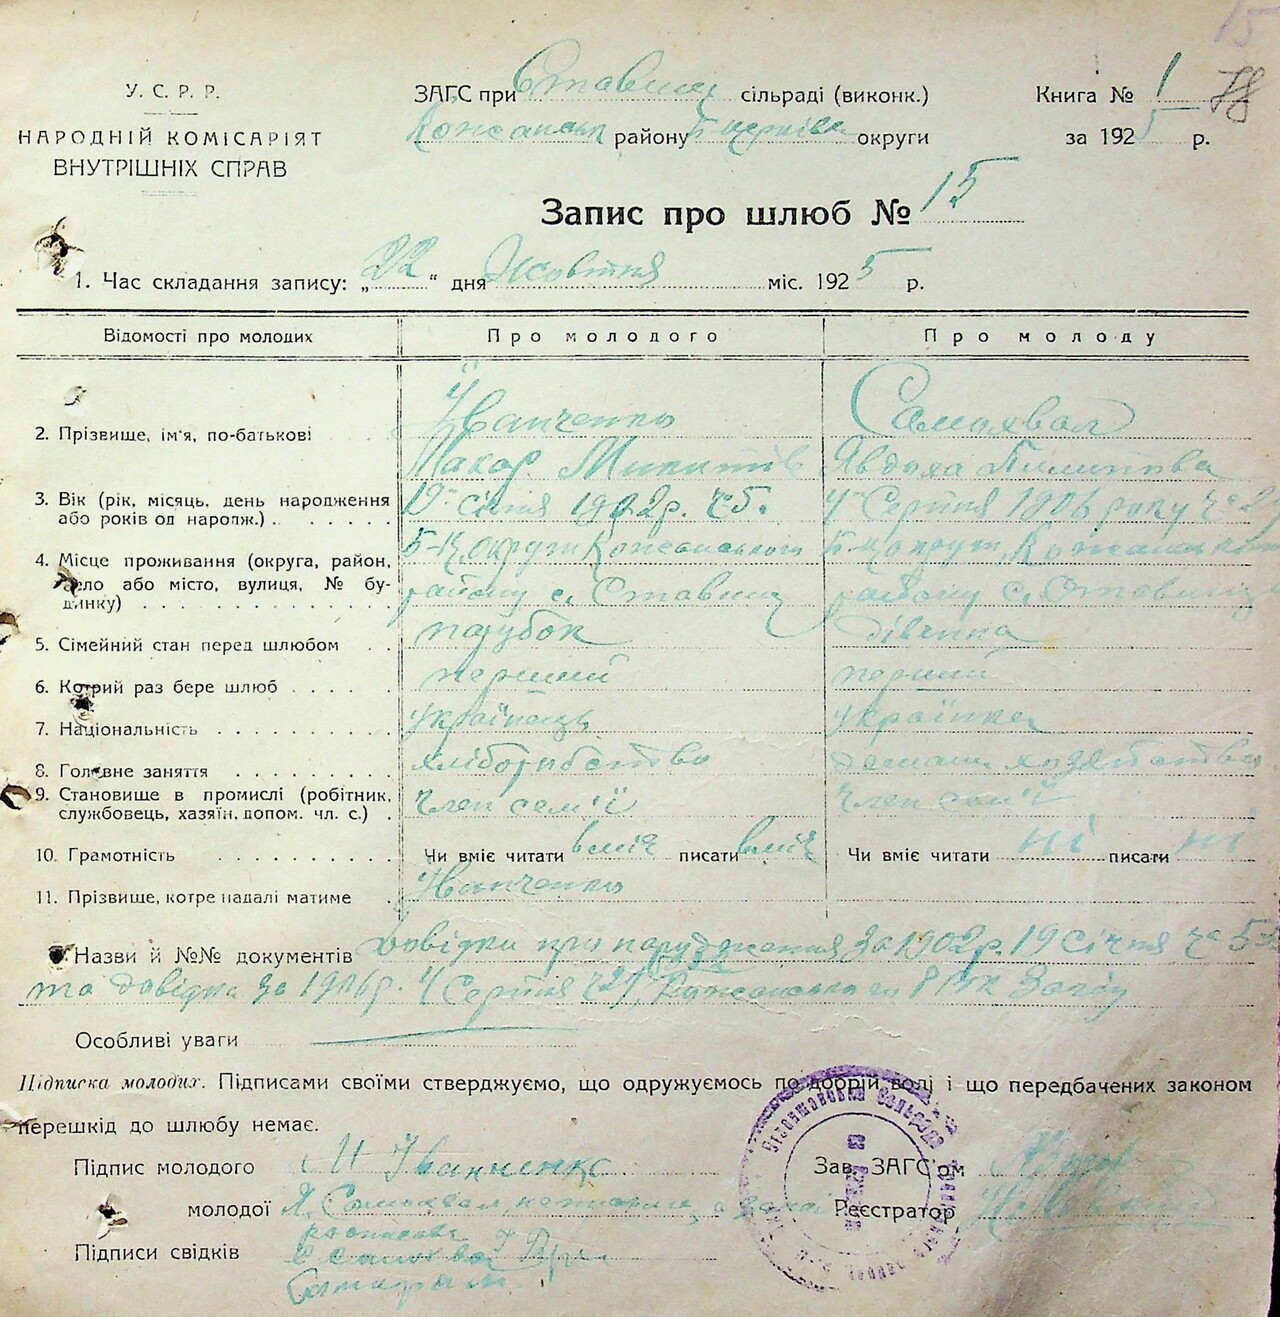 У. С. Р. Р.
НАРОДНІЙ КОМІСАРІЯТ
ВНУТРІШНІХ СПРАВ
ЗАГС при Ставищ сільраді (виконк.)
Кожанськ району Б церківс округи
Книга № 1
78
за 1925 р.
Запис про шлюб № 15
1. Час складання запису: „22" дня Жовтня міс. 1925 р.
Відомості про молодих Про молодого Про молоду
2. Прізвище, ім'я, по-батькові Иванченко Самохвал
Макар Микитів Явдоха Пилипова
3. Вік (рік, місяць, день народження або років од народж.) 19 Січня 1902 р. ч 5. 4 Серпня 1906 року ч
4. Місце проживання (округа, район, село або місто, вулиця, № будинку) Б-Ц округи Кожанського Б-Ц округи Кожанського
району с. Ставищ району с. Ставищ
5. Сімейний стан перед шлюбом парубок дівчина
6. Котрий раз бере шлюб перший перший
7. Національність українець українка
8. Головне заняття хліборобство
9. Становище в промислі (робітник, службовець, хазяїн, допом. чл. с.) член сем'ї член сем'ї
10. Грамотність Чи вміє читати вміє писати вміє Чи вміє читати ні писати ні
11. Прізвище, котре надалі матиме Иванченко
Назви й №№ документів Довідки про народження за 1902 р. 19 Січня ч 5
та довідка за 1906 р. 4 Серпня Кожанського Загсу
Особливі уваги
Підписка молодих. Підписами своїми стверджуємо, що одружуємось по добрій волі і що передбачених законом
перешкід до шлюбу немає.
Підпис молодого М Иванченко
Зав. ЗАГС'ом
молодої Я. Самохвал
Реєстратор
Підписи свідків